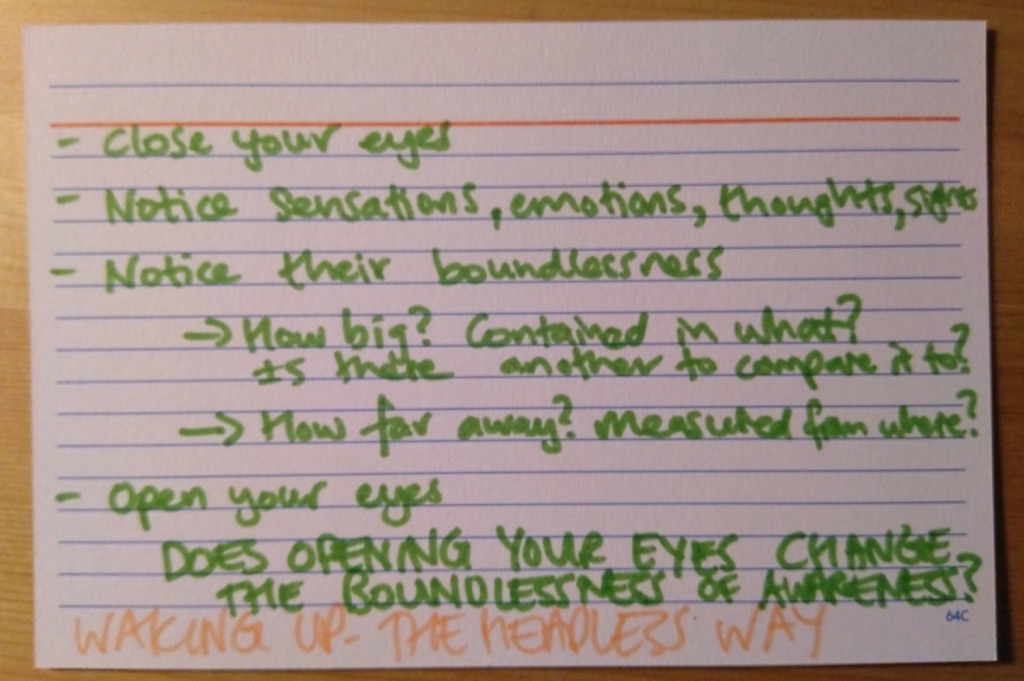 - Close your eyes
- Notice sensations, emotions, thoughts, sights
- Notice their boundlessness
→ How big? Contained in what?
Is there another to compare it to?
→ How far away? Measured from where?
- Open your eyes
DOES OPENING YOUR EYES CHANGE
THE BOUNDLESSNESS OF AWARENESS?
64C
WAKING UP - THE HEADLESS WAY